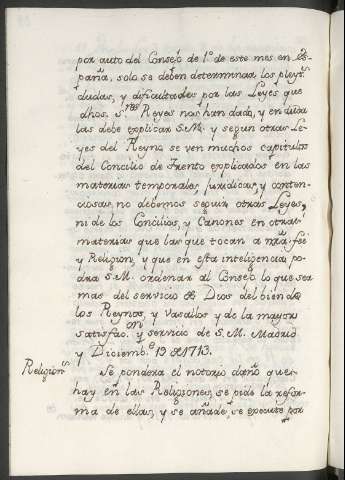 por auto del Consejo de 1.º de este mes en Es-
paña, solo se deben determinar los pleyt.ˢ
dudas, y dificultades por las Leyes que
dhos. S.ʳᵉˢ Reyes nos han dado, y en duda
las debe explicar S.M. y segun otras Le-
yes del Reyno se ven muchos capitulos
del Concilio de Trento explicados en las
materias temporales, juridicas, y conten-
ciosas, no debemos seguir otras Leyes,
ni de los Concilios, y Canones en otras
materias que las que tocan a nrâ. feé
y Religion, y que en esta inteligencia po-
drá S.M. ordenar al Consejo lo que sea
mas del servicio de Dios del bien de
los Reynos, y Vasallos y de la mayor
satisfac.ᵒⁿ y servicio de S.M. Madrid
y Diciemb.ᵉ 19 de 1713.
Religion.ˢ
Se pondera el notorio daño que
hay en las Religiones, se pide la refor-
ma de ellas, y se añade, se execute por